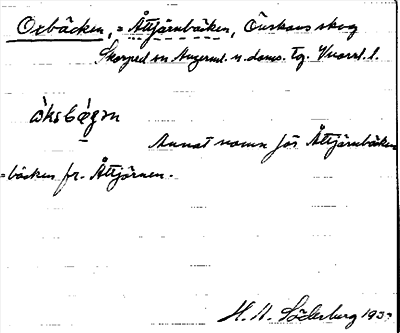 Oxbäcken, = Åttjärnbäcken, Önskans skog
Skorped sn Ångerml. n. doms. Tg. Vnorrl. l.
òksbǽgɔn
Annat namn för Åttjärnbäcken
= bäcken fr. Åttjärnen.
H. N. Söderberg 193